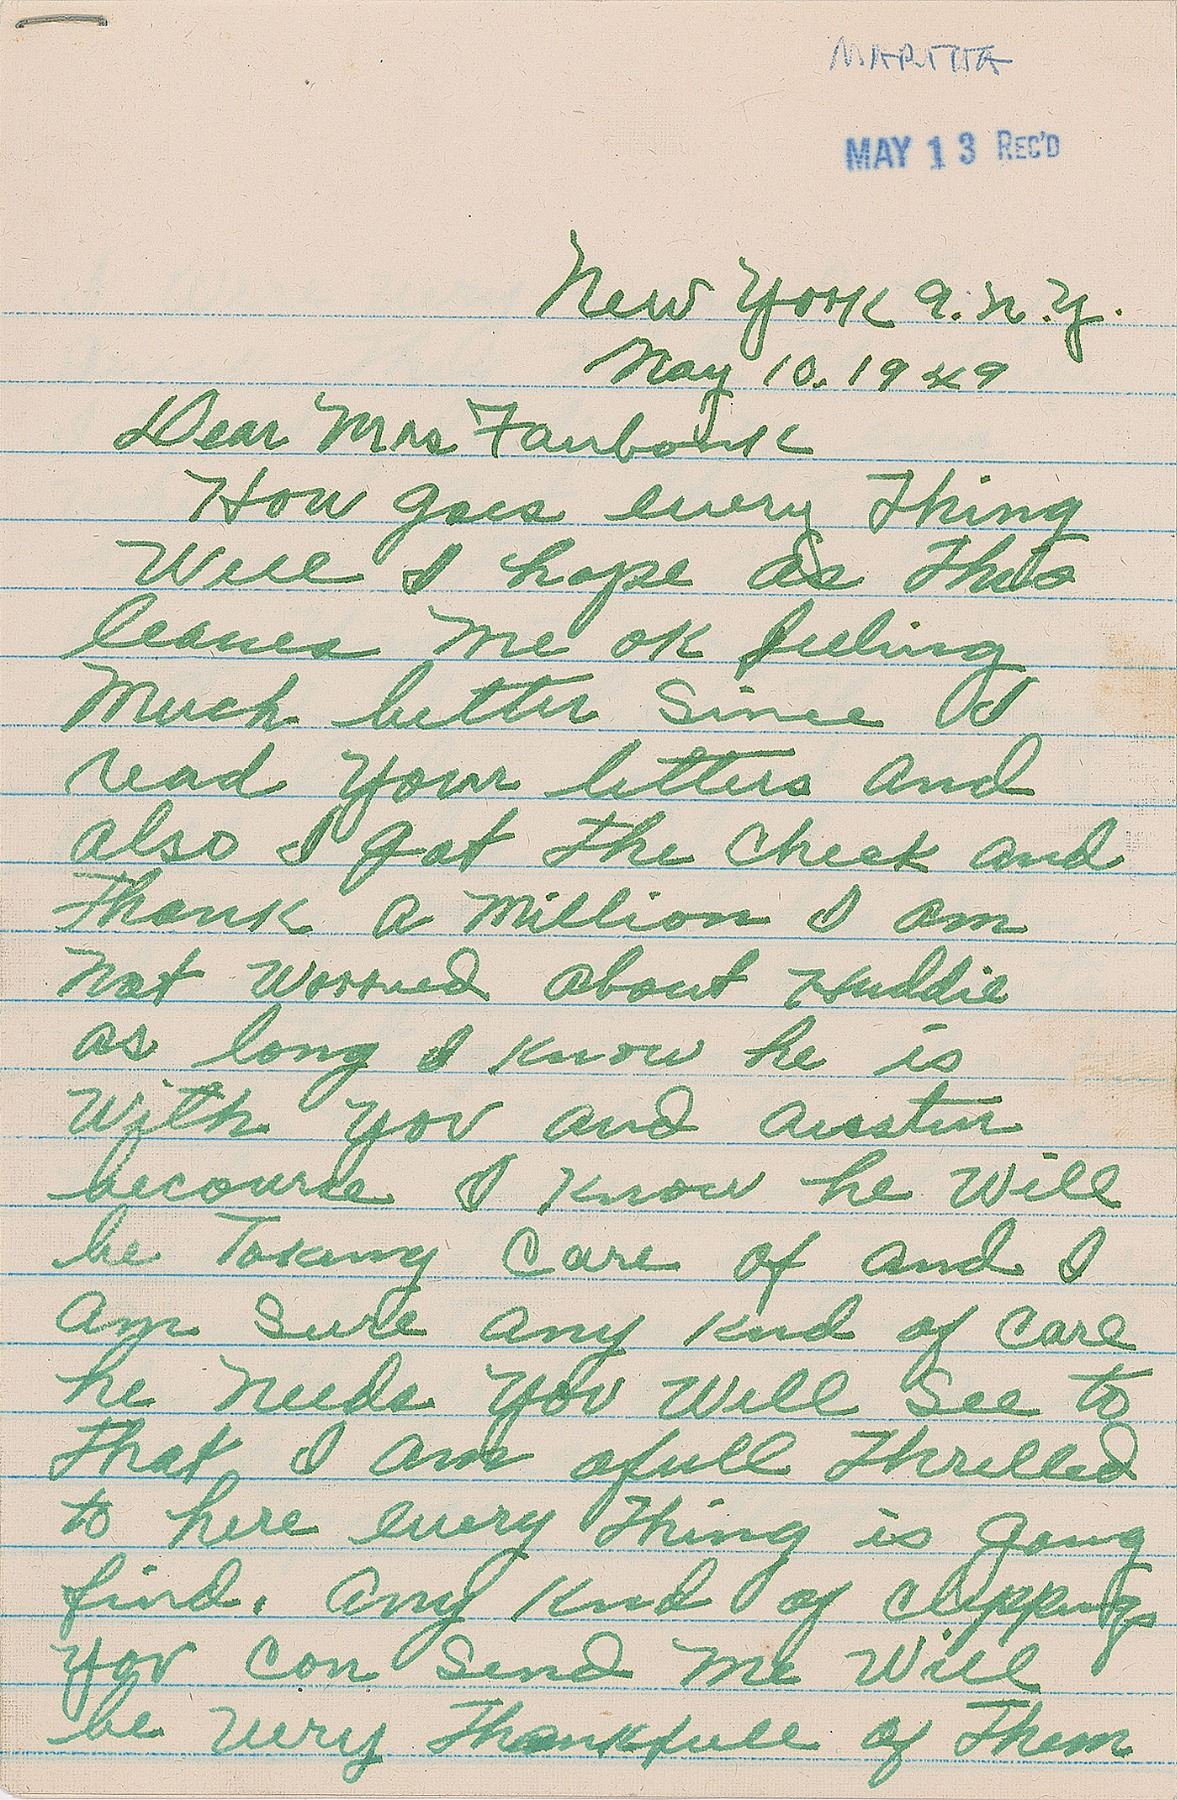 MARTHA
MAY 13 REC'D
New York 9. N.Y.
May 10. 1949
Dear Mrs Fairbank
How goes every Thing
Well I hope as This
leaves Me ok feeling
Much better Since I
read your letters and
also I gat the Check and
Thank a Million I am
Not Worried about Huddie
as long I Know he is
With you and Austin
becourse I Know he Will
be Taking Care of and I
am Sure any Kind of Care
he Needs you Will See to
that I am afull Thrilled
to here every Thing is going
find. any Kind of clippings
you can Send Me Will
be Very Thankfull of Them